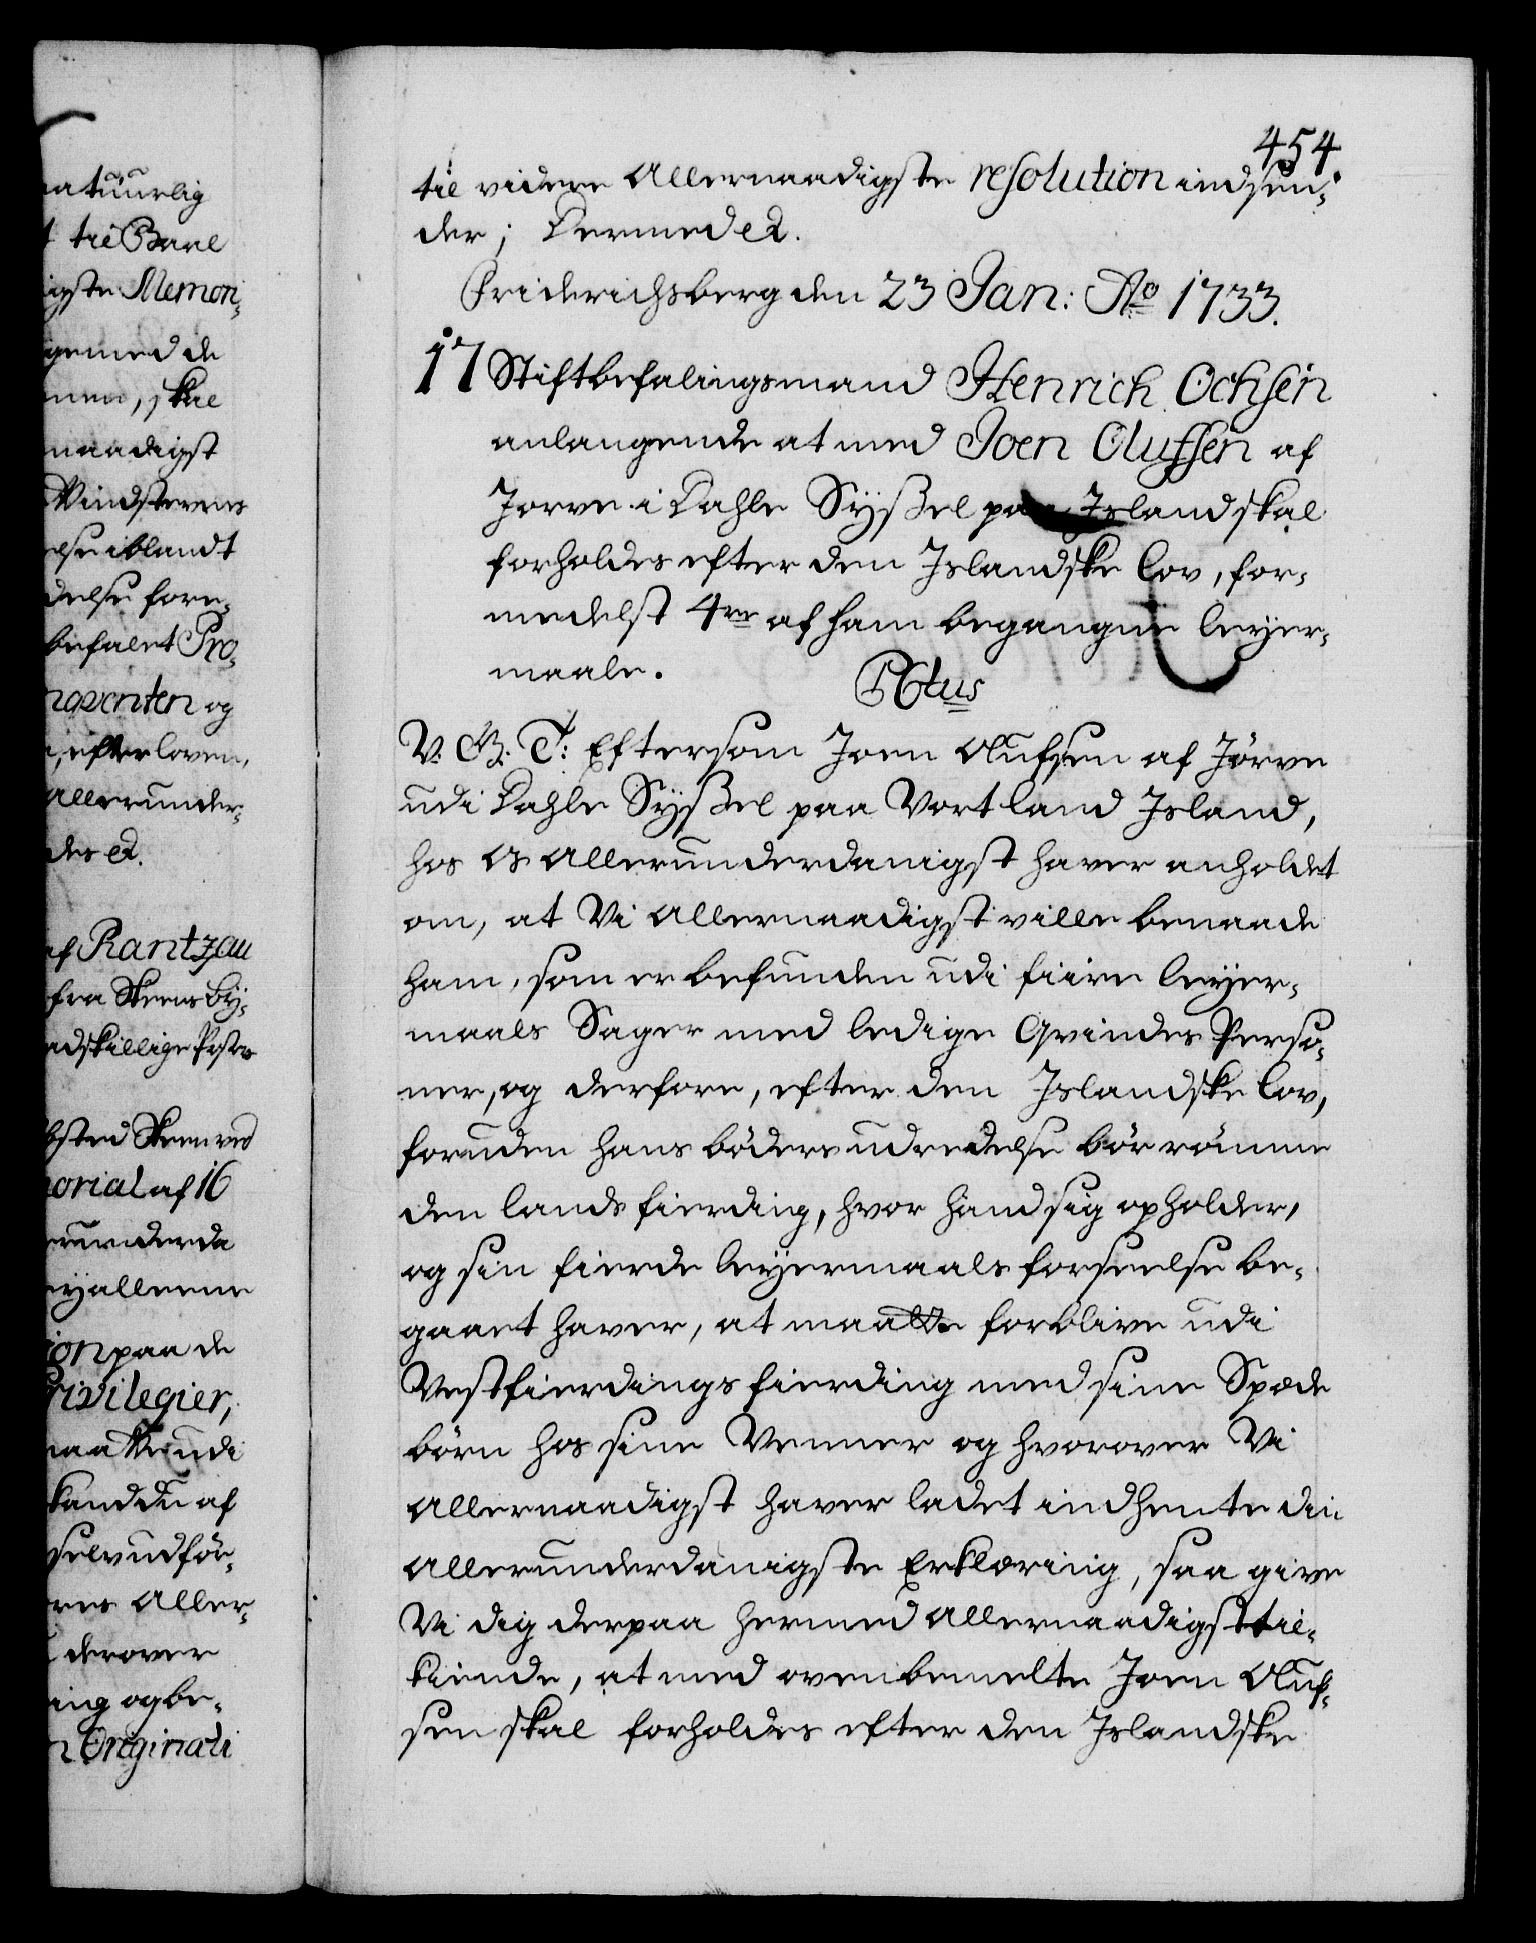 natuurlig
til Bavl
igste Memori¬
gemed de
, skal
naadigst
Vindstevens
else iblandt
delse fore¬
befalet Pro¬
og
, efter loven,
allerunder¬
des etc.
af Rantzau
fra Skeensby¬
adskillige Poster
bsted Skeen ved
orial af 16
erunderda
ey alleene
ion paa de
Privilegier,
naa Ve udi
kand du af
selv udför¬
res Aller¬
derover
ing og be¬
n Originali
454.
til videre Allernaadigste resolution indsen¬
der; Dermed etc.
Friderichsberg den 23 Jan: Ao 1733.
17 Stiftbefalingsmand Henrich Ochsen
anlangende at med Joen Olufsen af
Jorve i Dahle Sysszel paa Island skal
forholdes efter den Islandske lov, for¬
medelst 4re af ham begangne leyer¬
maale.
PStus
V. G. T: Eftersom Joen Olufsen af Jörve
udi Dahle Sysszel paa Vort land Island,
hos Os allerunderdanigst haver anholdet
om, at Vi allernaadigst ville benaade
ham, som er befunden udi fiire leyer¬
maals Sager med ledige Qvindes Perso¬
ner, og derfore, efter den Islandske lov,
foruden hans böders udredelse bör römme
den lands fierding, hvor hand sig opholder,
og sin fierde leyermaals forseelse be¬
gaaet haver, at maatte forblive udi
Vestfierdings fierding med sine Spæde
börn hos sine Venner og hvorover Vi
allernaadigst haver ladet indhente din
allerunderdanigste Erklæring, saa give
Vi dig derpaa hermed allernaadigst til¬
kiende, at med ovenbemelte Joen Oluf¬
sen skal forholdes efter den Islandske